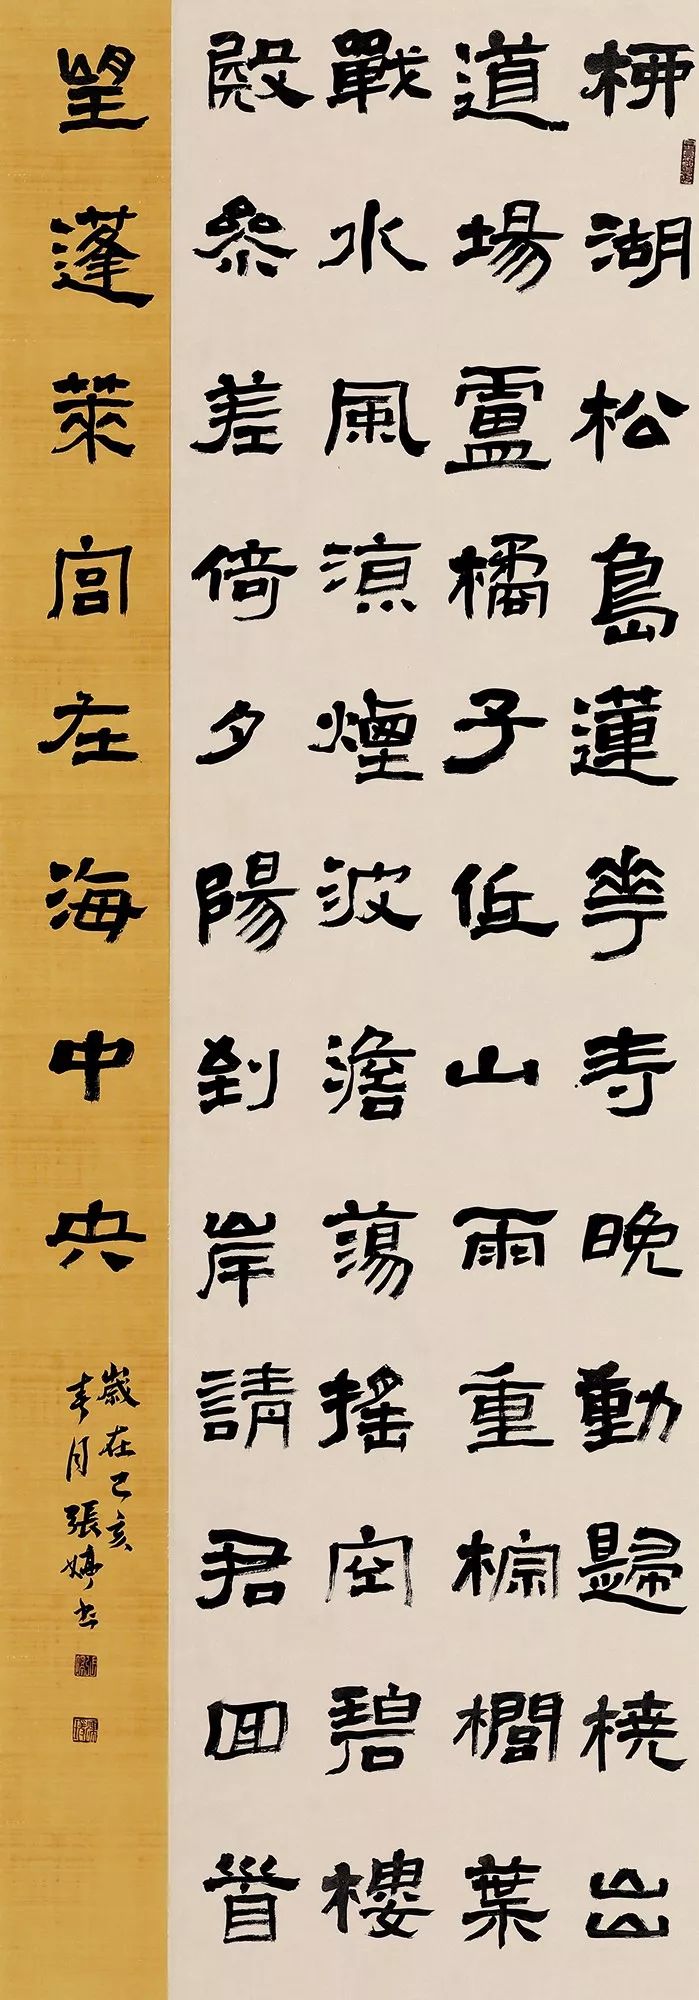 柳湖松島蓮華寺晚動歸橈出
道場盧橘子低山雨重棕櫚葉
戰水風涼煙波澹蕩搖空碧樓
殿參差倚夕陽到岸請君回首
望蓬萊宮在海中央
歲在己亥
月張書